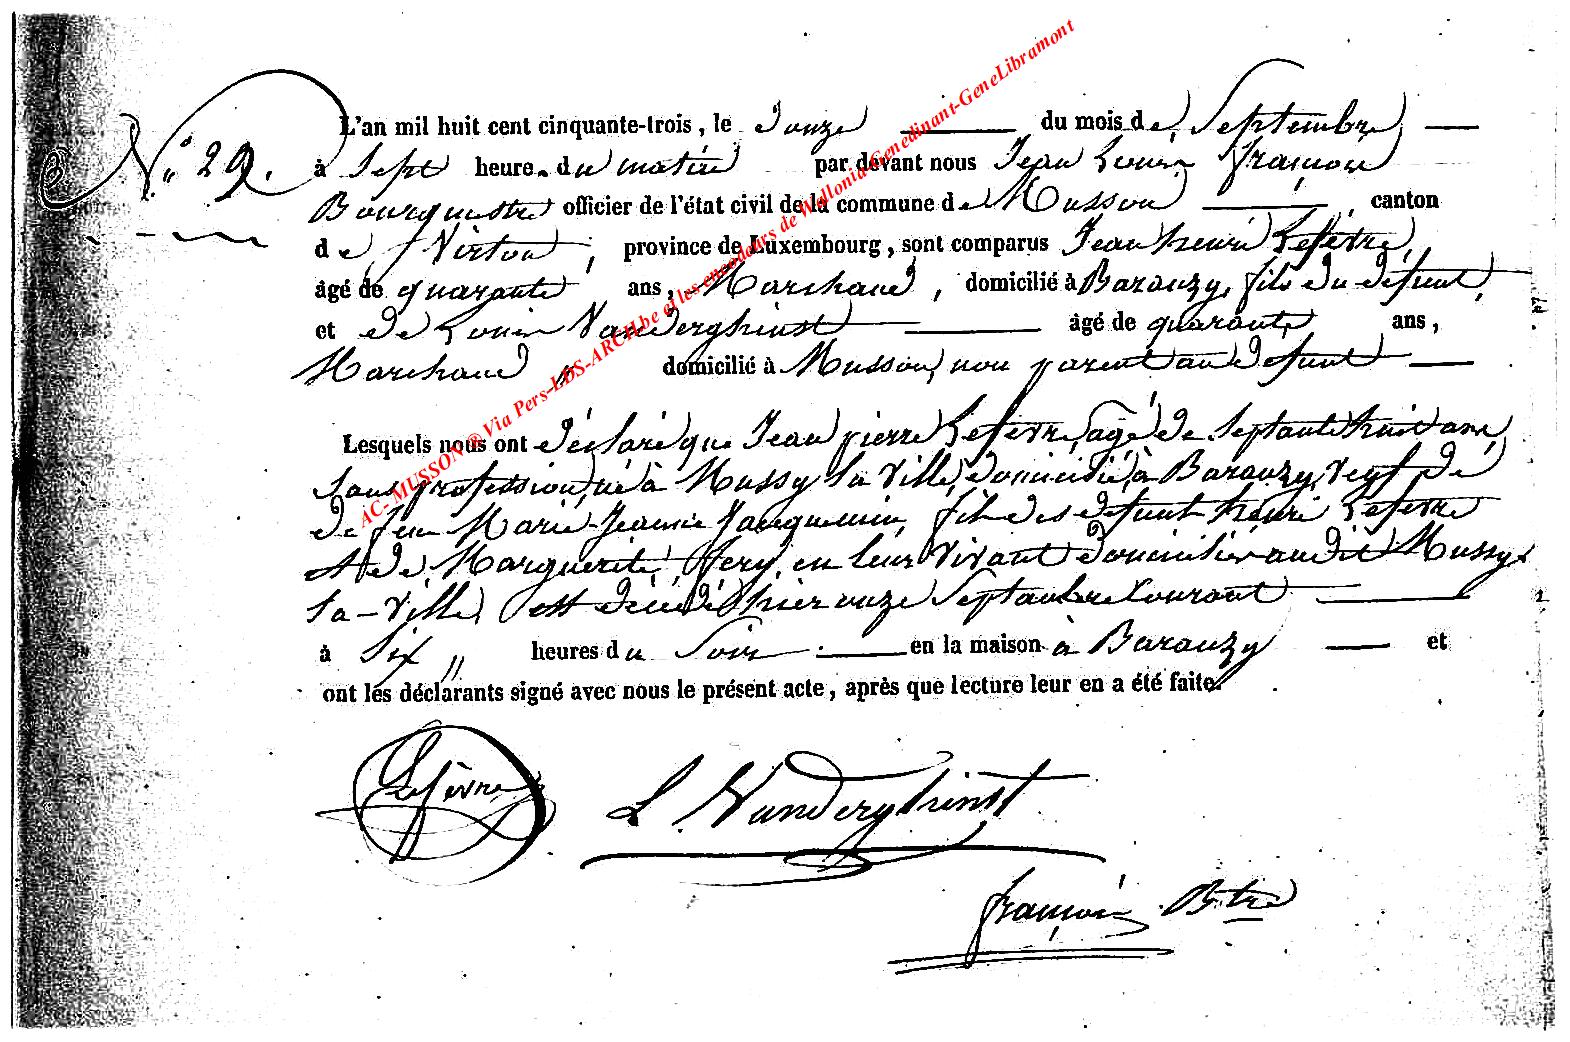 N° 29.
L'an mil huit cent cinquante-trois, le Douze du mois de Septembre
à Sept heures du matin par devant nous Jean Louis François
Bourgmestre officier de l'état civil de la commune de Musson, canton
de Virton, province de Luxembourg, sont comparus Jean henri Lefèvre,
âgé de quarante ans, Marchand, domicilié à Baranzy, fils du defunt,
et de Louis Vanderghinst âgé de quarante ans,
Marchand domicilié à Musson, non parent au defunt
Lesquels nous ont déclaré que Jean pierre Lefevre, agé de Septante huit ans,
sans profession, né à Mussy la Ville, domicilié à Baranzy, veuf de
de feu Marie Jeanne Jacquemin, fils des defunts henri Lefevre
et de Marguerite fery, en leur vivant domiciliés au dit Mussy
la-Ville, est décédé hier onze Septembre Courant
à Six heures du Soir en la maison à Baranzy et
ont les déclarants signé avec nous le présent acte, après que lecture leur en a été faite.
Lefèvre
L. Vanderghinst
françois Btre
AC- MUSSON ® Via Pers-LDS-ARCH.be et les encodeurs de Wallonia-Genedinant-GeneLibramont